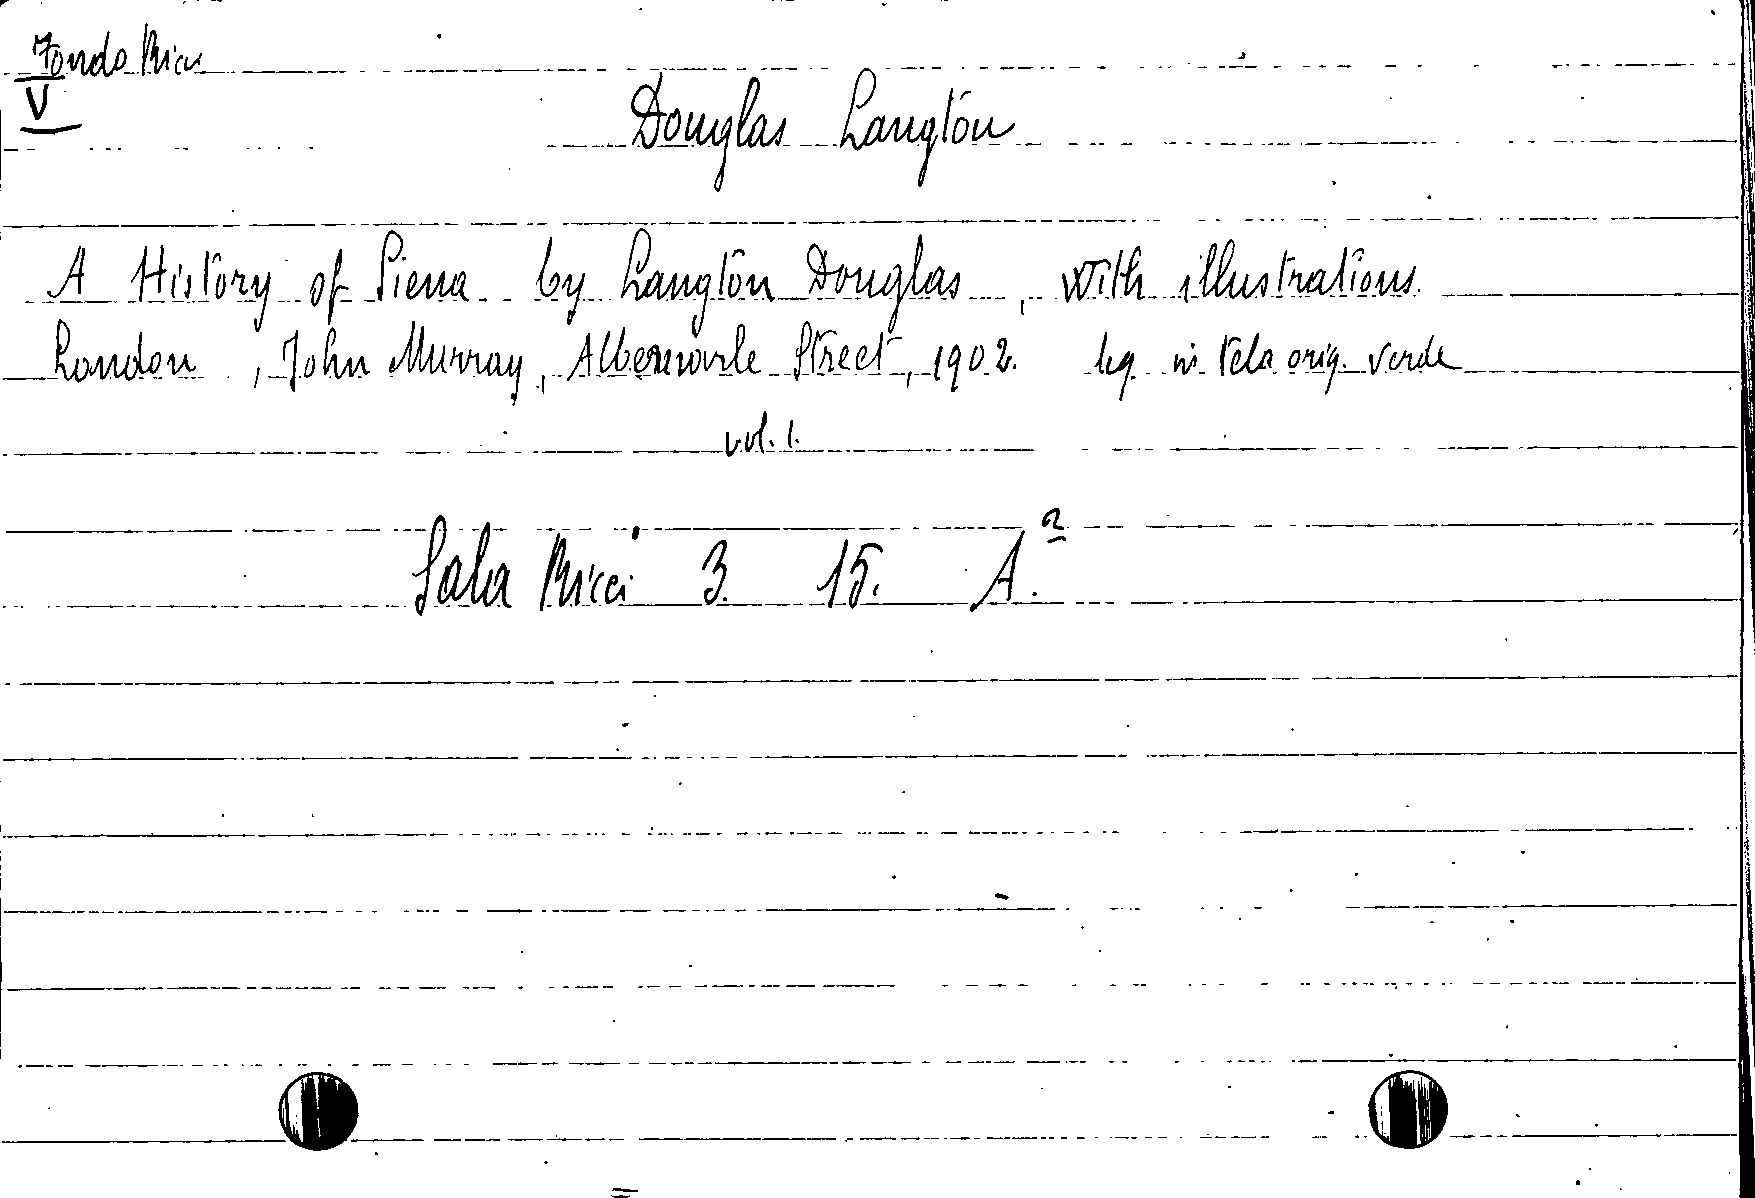 Fondo Ricci
V
Douglas Langton
A History of Siena by Langton Douglas, with illustrations.
London, John Murray, Albemarle Street, 1902. leg. in tela orig. verde
vol. 1.
Sala Ricci 3. 15. A.²